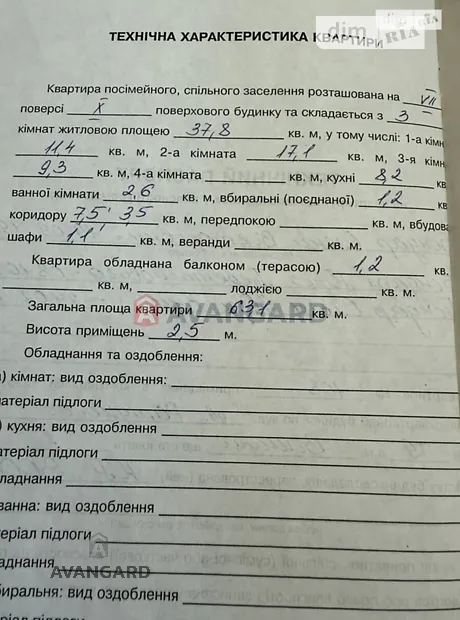 ТЕХНІЧНА ХАРАКТЕРИСТИКА КВАРТИРИ
dim RIA
Квартира посімейного, спільного заселення розташована на VII
поверсі X поверхового будинку та складається з 3
кімнат житловою площею 37,8 кв. м, у тому числі: 1-а кімн
11,4 кв. м, 2-а кімната 17,1 кв. м, 3-я кімн
9,3 кв. м, 4-а кімната кв. м, кухні 8,2 кв
ванної кімнати 2,6 кв. м, вбиральні (поєднаної) 1,2 кв
коридору 7,5 3,5 кв. м, передпокою кв. м, вбудова
шафи 1,1 кв. м, веранди кв. м.
Квартира обладнана балконом (терасою) 1,2 кв.
кв. м, лоджією кв. м.
Загальна площа квартири 63,1 кв. м.
AVANGARD
Висота приміщень 2,5 м.
Обладнання та оздоблення:
) кімнат: вид оздоблення:
матеріал підлоги
) кухня: вид оздоблення:
матеріал підлоги
бладнання
ванна: вид оздоблення:
теріал підлоги
аднання
AVANGARD
биральня: вид оздоблення:
еріал підлоги